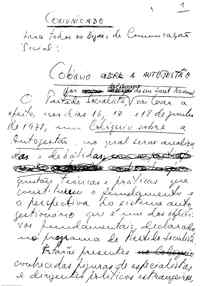 1
COMUNICADO
Para todos os Órgãos de Comunicação
Social:
COLÓQUIO SOBRE A AUTOGESTÃO
O Partido Socialista vai levar a
efeito, nos dias 16, 17 e 18 de Junho
de 1978, um Colóquio sobre a
Autogestão, no qual serão analisa
das e debatidas
questões teóricas e práticas que
constituem o fundamento e
a perspectiva do sistema auto
gestionário que é um dos objecti
vos fundamentais, declarado
no programa do Partido Socialista
Estarão presentes
conhecidas figuras de especialistas
e dirigentes políticos estrangeiros